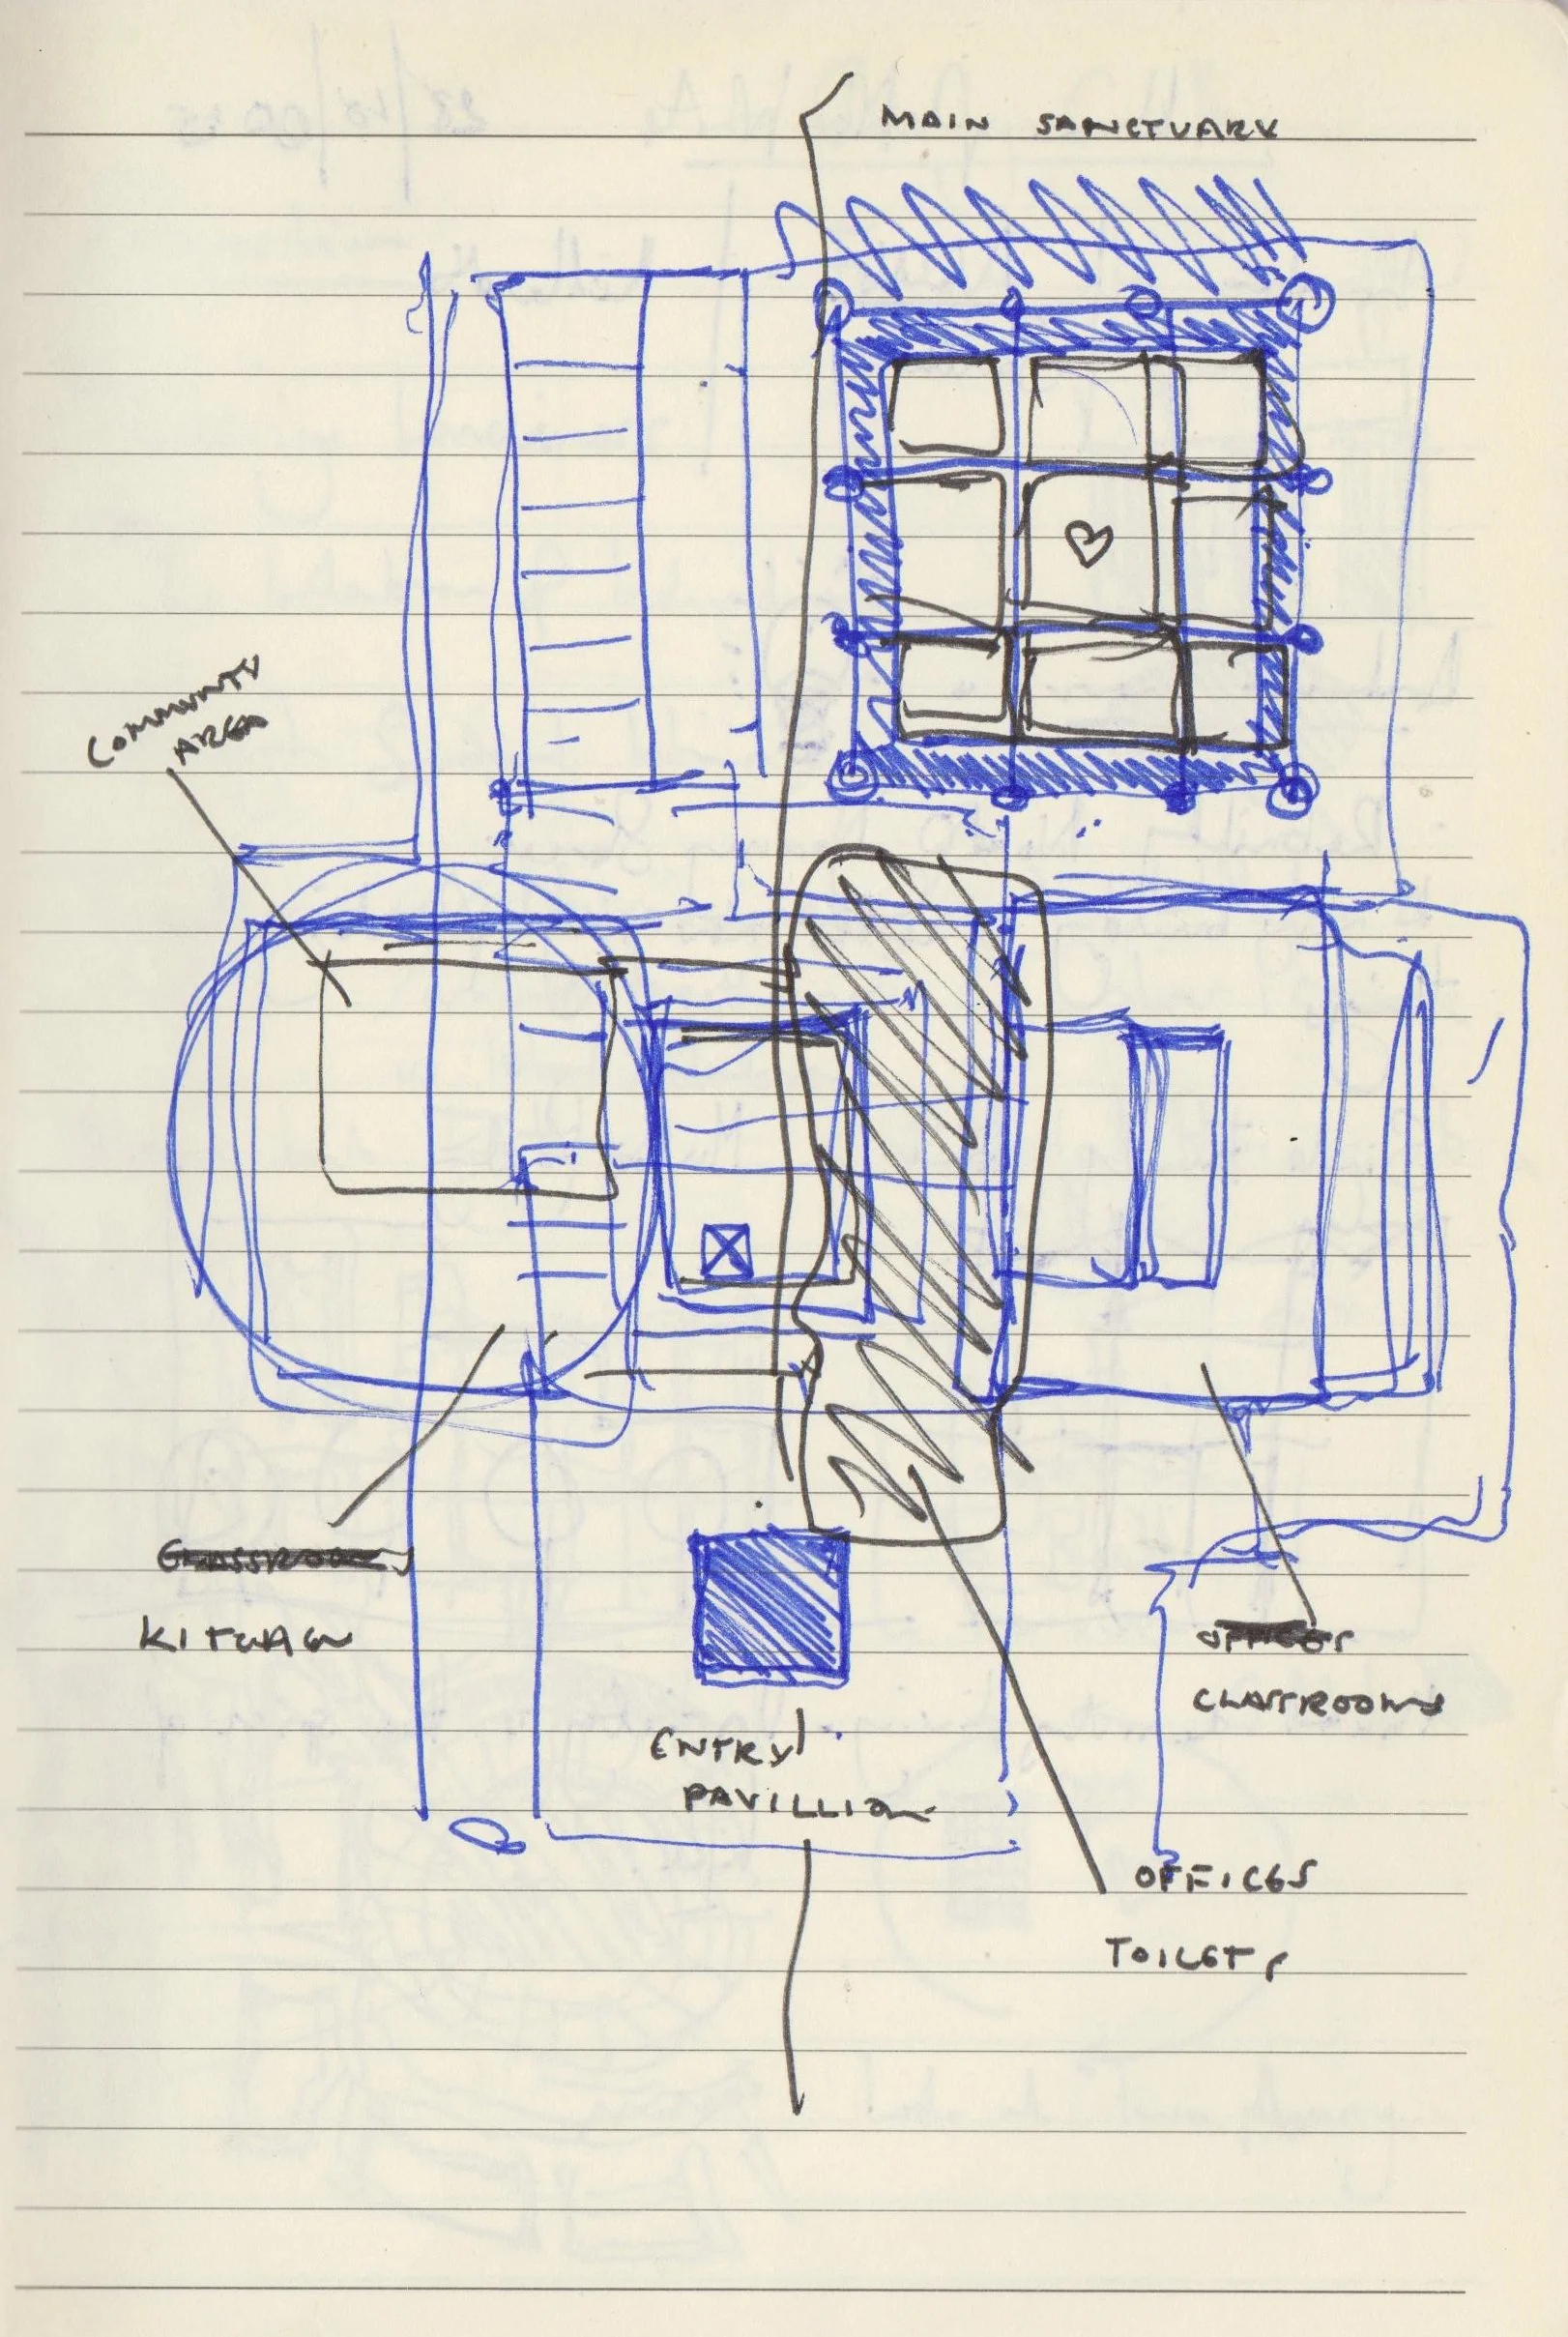 MAIN SANCTUARY
COMMUNITY
AREA
CLASSROOMS
KITCHEN
OFFICES
CLASSROOMS
ENTRY
PAVILLION
OFFICES
TOILETS